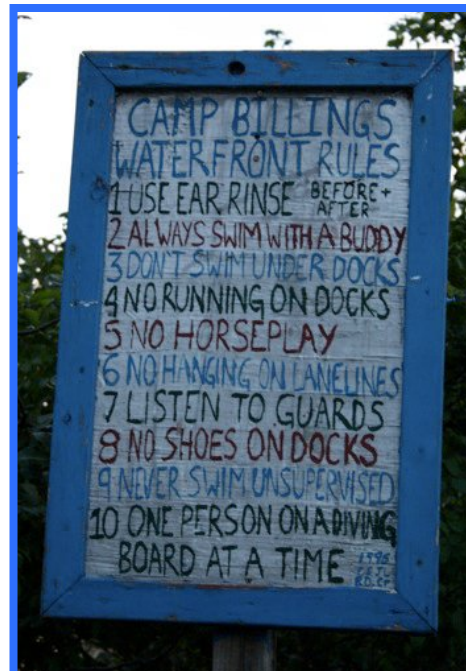 CAMP BILLINGS
WATERFRONT RULES
1 USE EAR RINSE BEFORE +
AFTER
2 ALWAYS SWIM WITH A BUDDY
3 DON'T SWIM UNDER DOCKS
4 NO RUNNING ON DOCKS
5 NO HORSEPLAY
6 NO HANGING ON LANELINES
7 LISTEN TO GUARDS
8 NO SHOES ON DOCKS
9 NEVER SWIM UNSUPERVISED
10 ONE PERSON ON A DIVING
BOARD AT A TIME